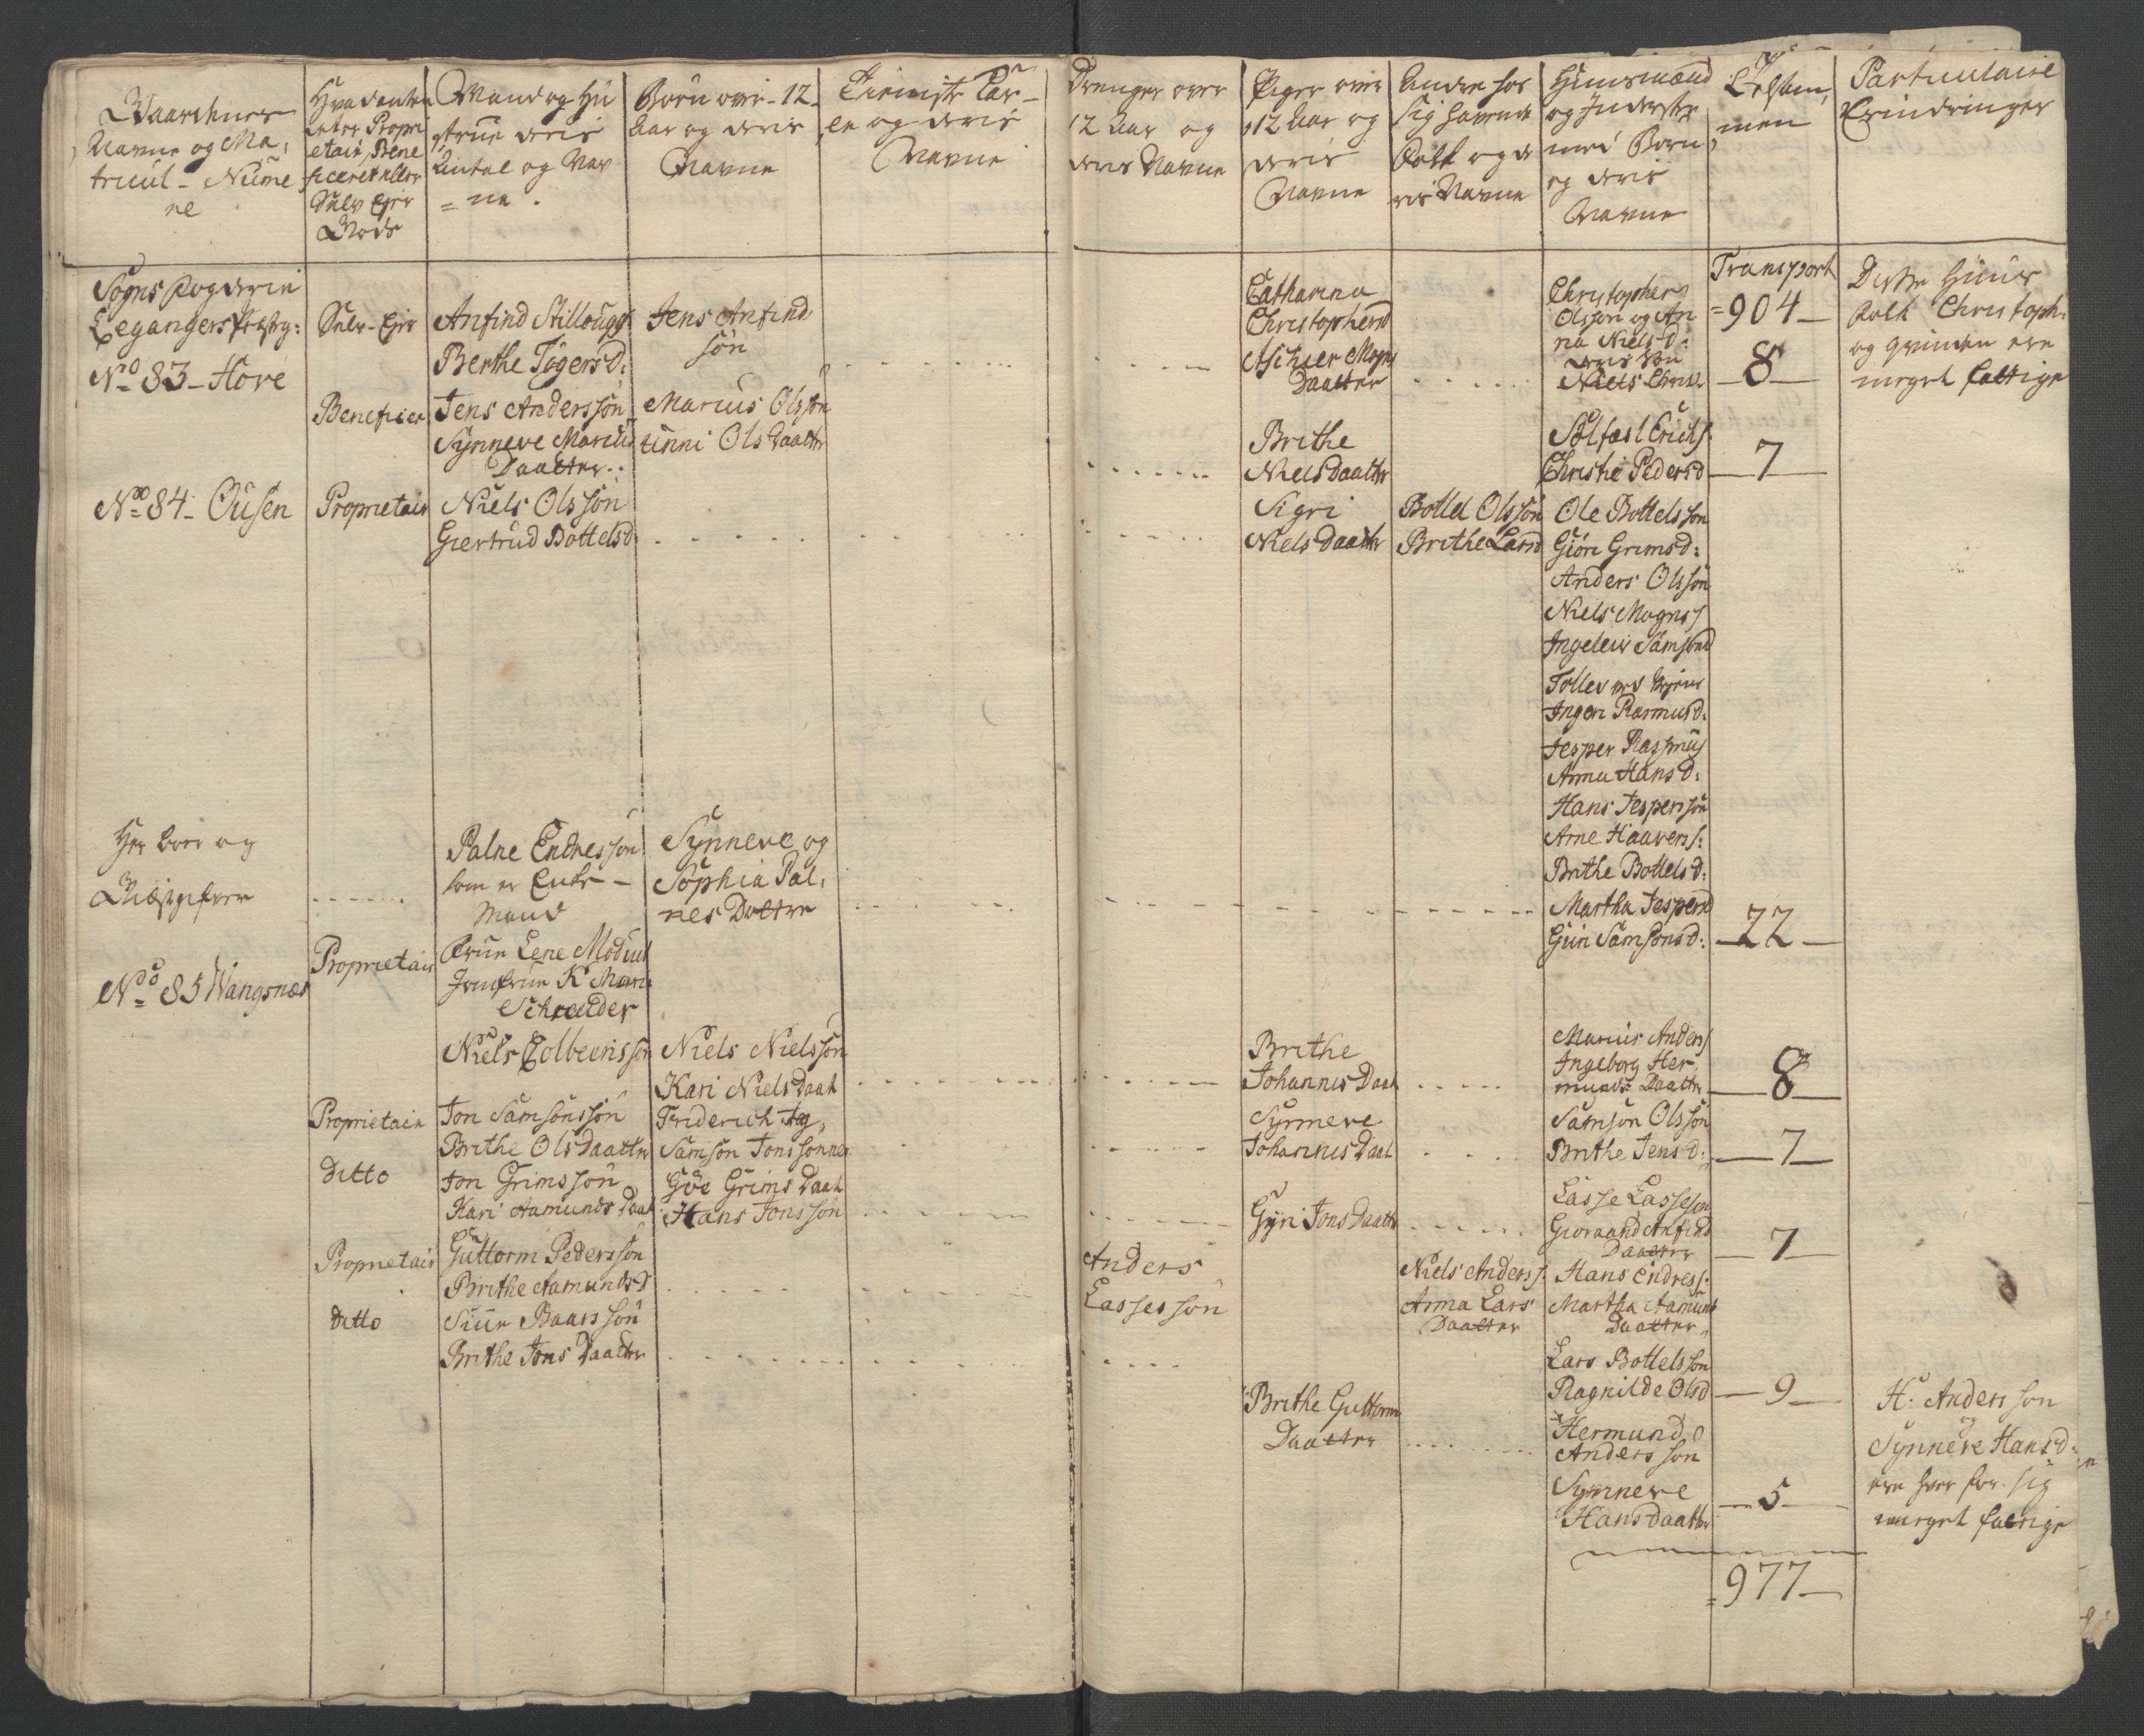 Gaardenes
Navne og Ma,
tricul - Numme
re
Hvad enten
enten Propri
etair, Bene
ficeret eller
Selv Ejer
Gods
Mand og Hu
strue deris
Antal og Nav
= ne.
Børn over - 12
Aar og deris
Navne
Tieniste Kar
le og deris
Navne
Drenger over
12 Aar og
deris Navne
Piger over
12 Aar og
deris
Navne
Andre hos
sig havende
Folk og de
ris Navne
Huusmænd
og Inderste
med Børn
og deris
Navne
men
Particulaire
Erindringer
Sogns Fogderie
Leganger Præstg:
No 83 - Hove
Selv-Ejer
Anfind Stillougs
Berthe Tøgersd:
Jens Anfind
søn
Catharina
Christophersd
Magns
Daatter
Christopher
Olsson og An
na Nielsd:
deris Søn
Niels Chris.
Transport
= 904 -
8
Disse Huus
Folk Christoph:
og qvinden ere
meget fattige
Beneficer
Jens Andersson
Synneve Marcus
Daatter
Marcus Olsson
unni Ols Daatter
Brithe
Niels daatter
Solfæst Erichs
Christie Pedersd
7
No 84 - Ousen
Proprietair
Niels Olsson
Giertrud Bottelsd:
Sigri
Niels Daatter
Bottel Olsson
Brithe Larsd
Ole Bottelsson
Giøri Grimsd:
Anders Olsson
Niels Magnss
Ingeleiv Samsond
Tollev
Ingeri Rasmusd:
Jesper Rasmus
Anna Hansd:
Hans Jespersøn
Arne Haavers:
Brithe Bottelsd:
Martha Jespersd
Guri Samsonsd:
22
Her boer og
Giestgifver
Palne Endresson
som er Enke -
Mand
Synneve og
Sophia Pal,
nes Dottre
No 85 Wangsnæs
Proprietair
Frue Lene Modul
Jomfrue K Mar:
Schreuder
Niels Colbeensson
Niels Nielsson
Kari Niels Daat
Brithe
Johannis Daat
Marcus Anders
Ingeborg Her,
munds Daatter
8
Proprietair
Jon Samsonsson
Brithe Ols Daatter
Friderich og
Samson Jonssønner
Synneve
Johannis Daat
Samson Olsson
Brithe Jensd:
7
ditto
Jon Grimsson
Kari Aamunds Daat
Gøe Grims Daat
Hans Jonsson
Gyri Jons Daatter
Lasse Lasseson
Giøraand Anfind
Daatter
7
Proprietair
Guttorm Pedersson
Brithe Aamundsd
Anders
Lassesson
Niels Anderss:
Anna Lars
Daatter
Hans Endress:
Martha Aamund
Daatter
ditto
Siur Baarsson
Brithe Jons Daatter
Lars Bottelsson
Ragnilde Olsd
9
Brithe Guttorm
Daatter
Hermund
Andersson
Synneve
Hansdaatter
5
H: Andersson
og
Synneve Hansd:
ere hver for sig
meget fattige
= 977 -